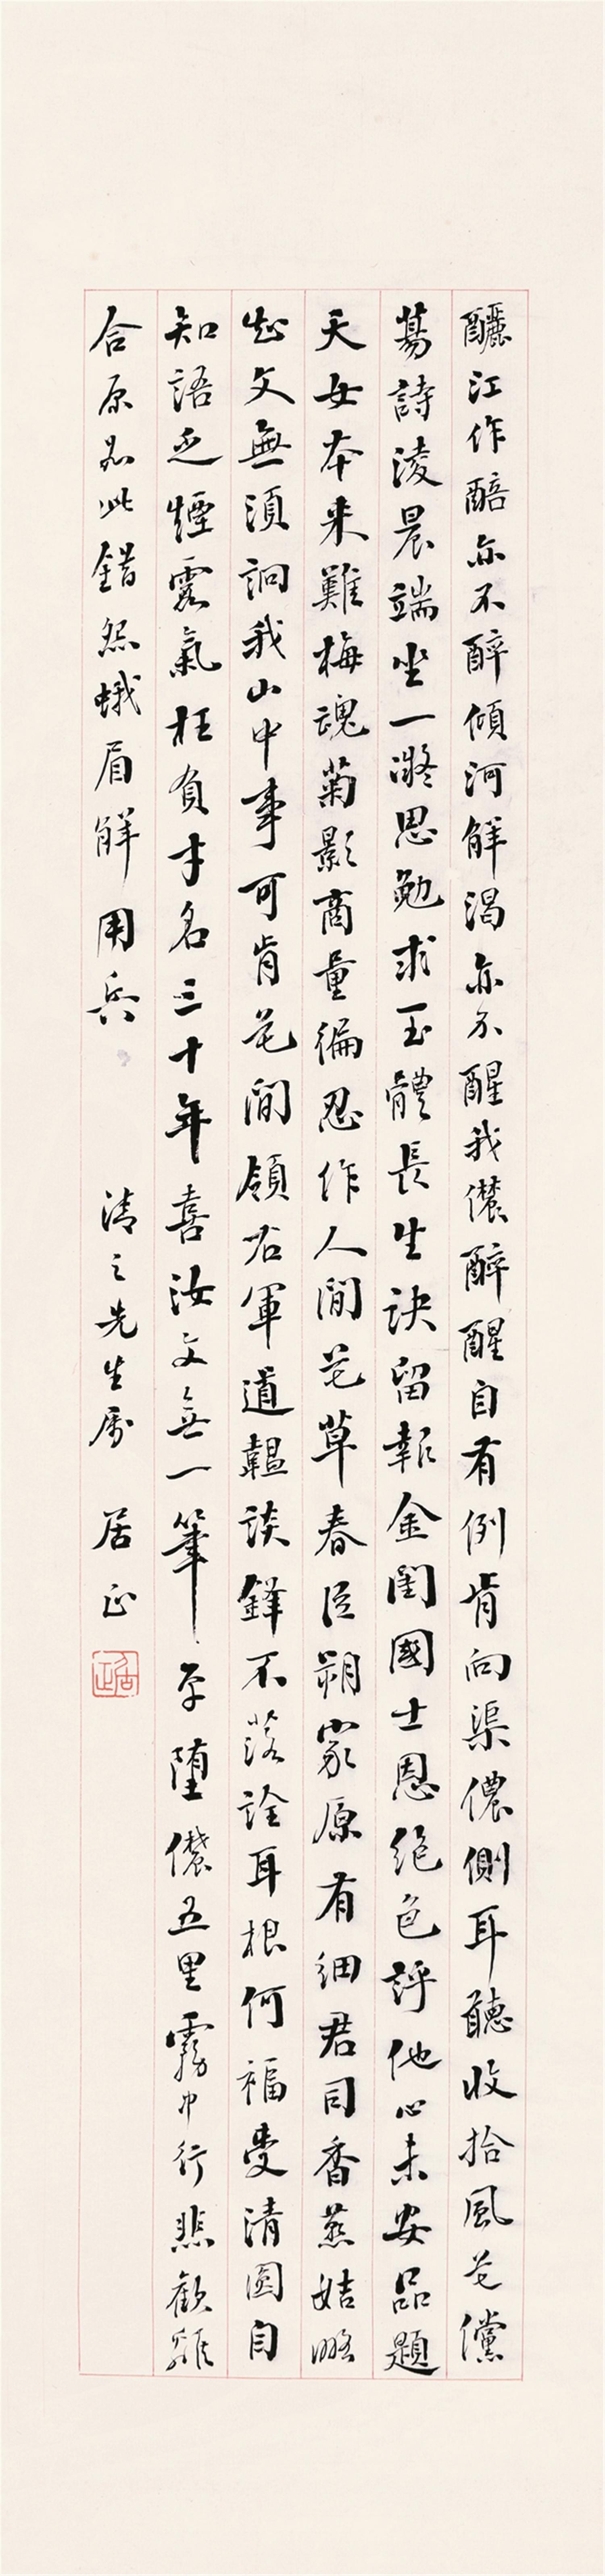 釃江作醅亦不醉傾河解渴亦不醒我儂醉醒自有例肯向渠儂側耳聽收拾風花儻
蕩詩淩晨端坐一凝思勉求玉體長生訣留報金閨國士恩絕色評他心未安品題
天女本來難梅魂菊影商量徧忍作人間花草春臣朔家原有細君司香燕姞略
知文無須詗我山中事可肯花間領右軍道韞談鋒不落詮耳根何福受清圓自
知語乏煙霞氣枉負才名三十年喜汝文無一筆平墮儂五里霧中行悲歡離
合原如此錯怨蛾眉解用兵 清之先生屬 居正
居正